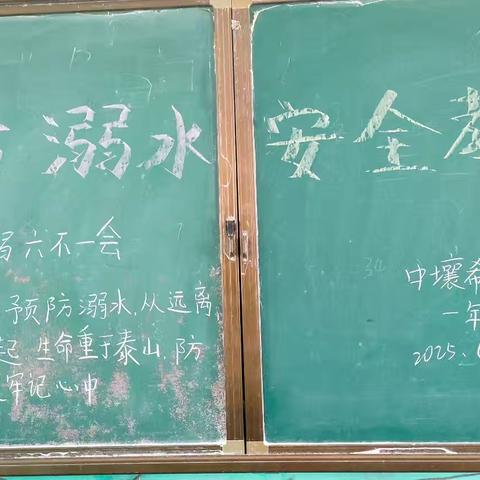 溺水 安全
六不一会
预防溺水,从远离
起 生命重于泰山,防
牢记心中
中壤希
一年
2025、